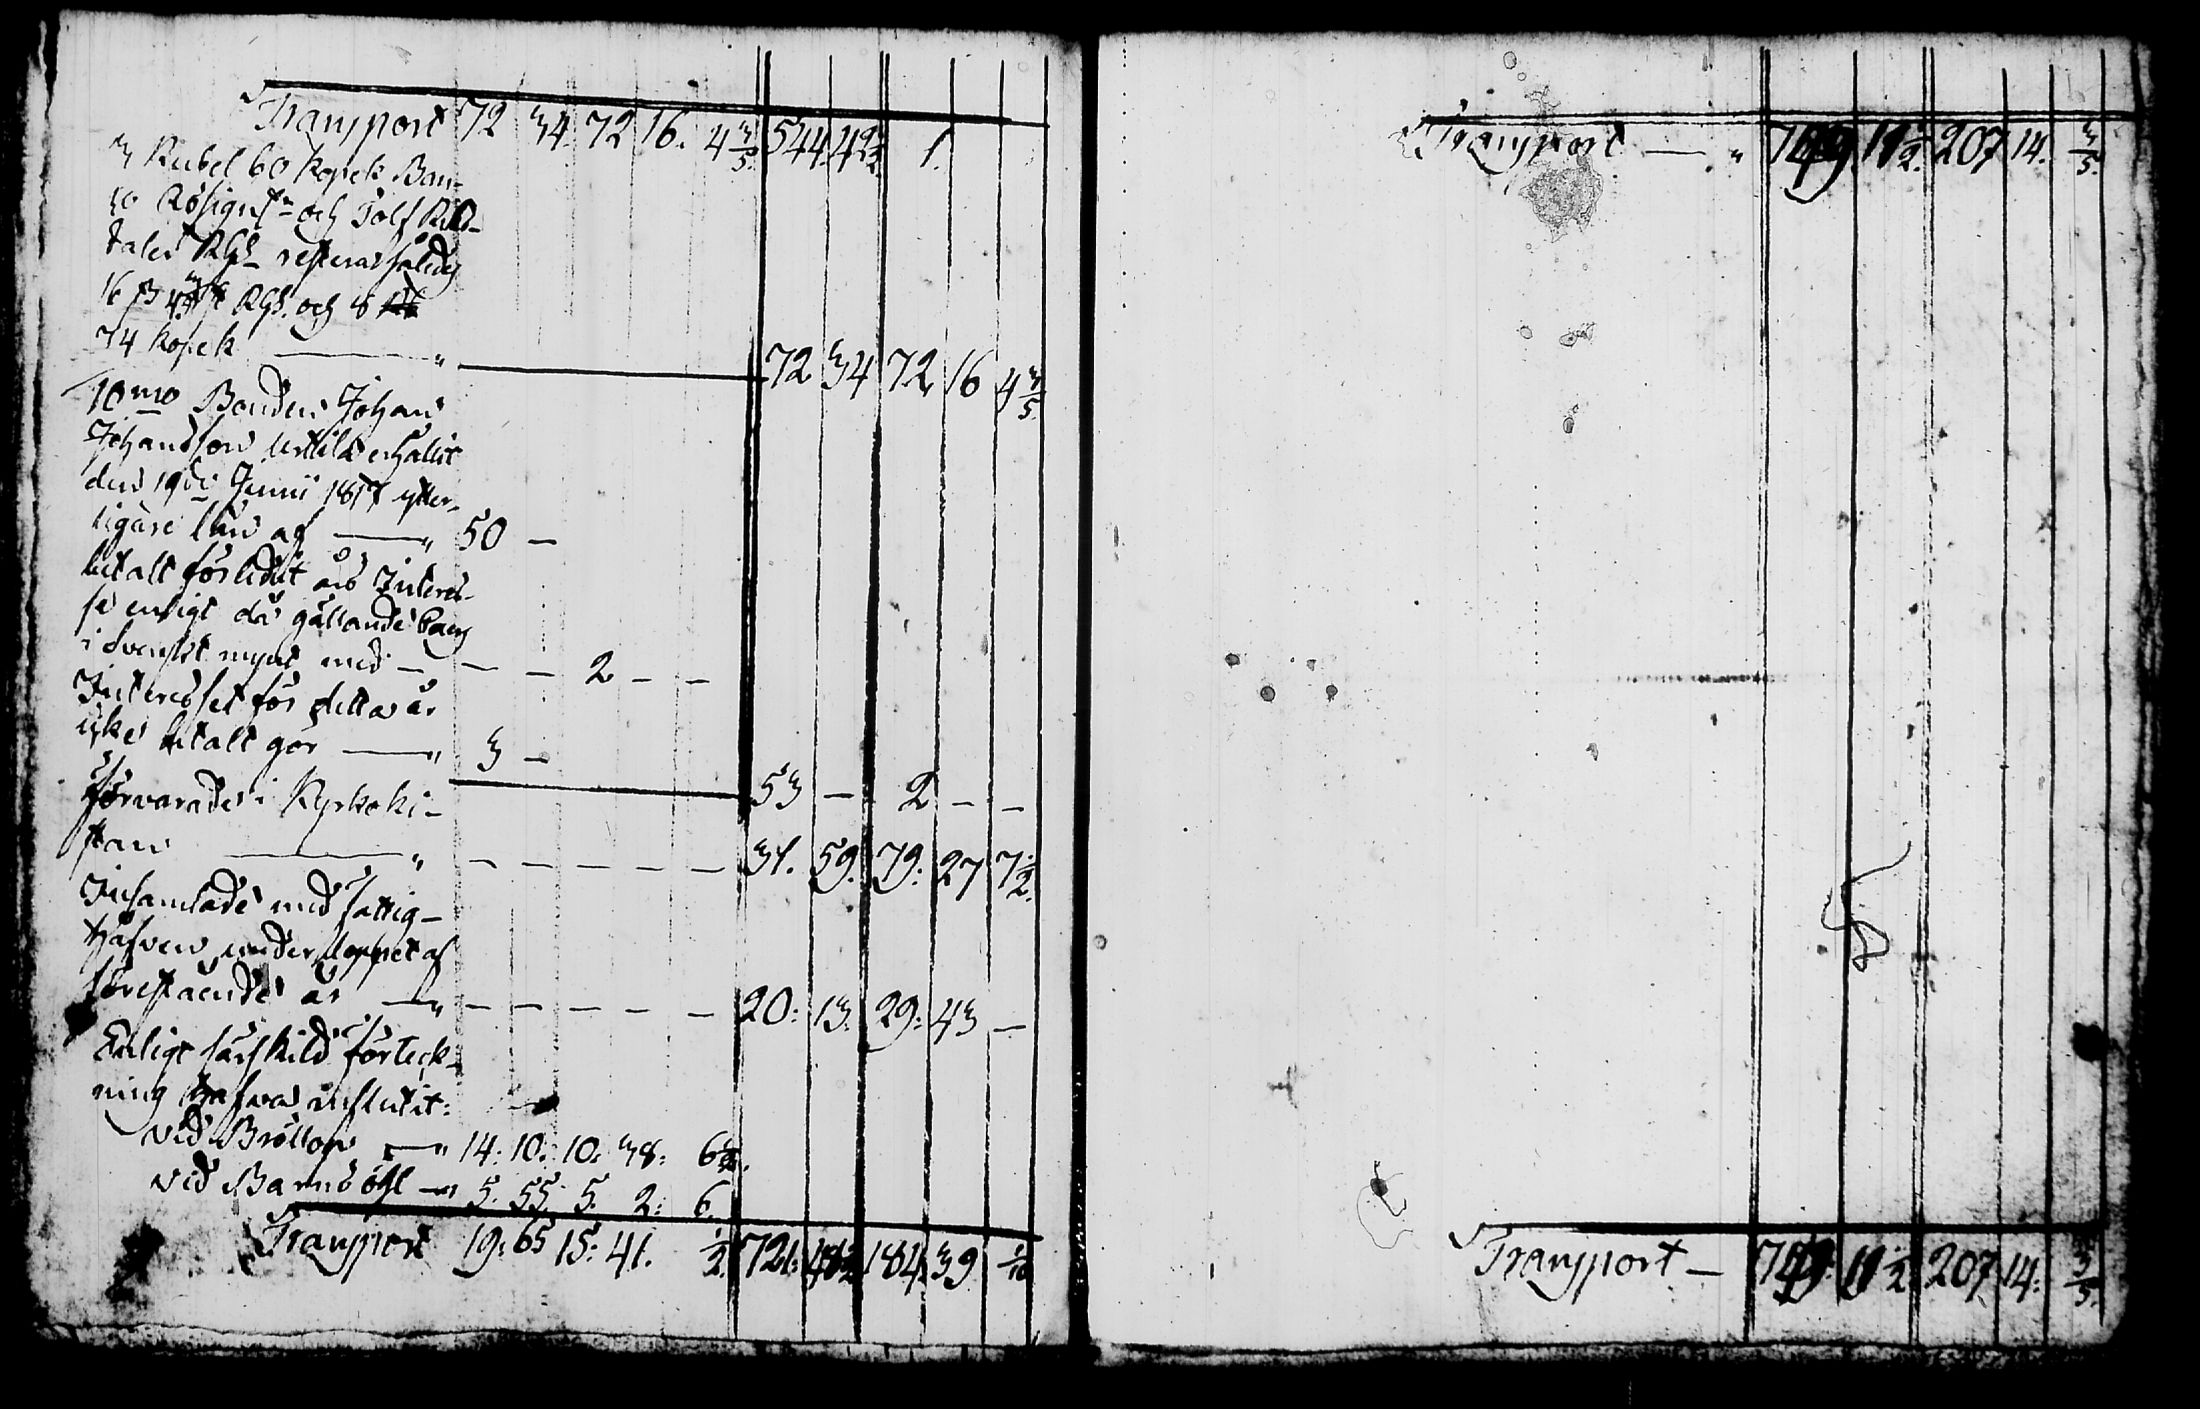 Transport 72 34. 72 16. 4 3/5. 544. 1.
3 Rubel 60 Kopek Ban-
co och Tolf Riks-
daler RGs. resterar således
16 ß RGs. och 8
74 kopek — " 72 34 72 16 4 3/5.
10mo Bonden Johan
Johansson erhållit
den 19de Junii 1817 ytter-
ligare lån af — " 50 —
betalt förledit års Interes-
se enligt då gällande Cours
i Svenskt mynt med — — — 2 — —
Interesset för detta år
icke betalt gör — " 3 —
53 — 2 — —
Förvarades i Kyrkoki-
stan — " — — — — — 31. 59. 79. 27 7 1/2.
Insamlade med fattig-
håfven under loppet af
förestående år — " — — — — — 20: 13: 29: 43 —
Enligt särskild förteck-
ning hafva influtit:
vid Bröllop — " 14: 10. 10: 38: 6
vid Barnsöhl — " 5. 55. 5. 2: 6.
Transport 19: 65 15: 41. 1/2. 721: 184. 39 1/10
Transport — " 749. 11 1/2. 207 14. 3/5.
Transport — 749. 11 1/2. 207 14: 3/5.